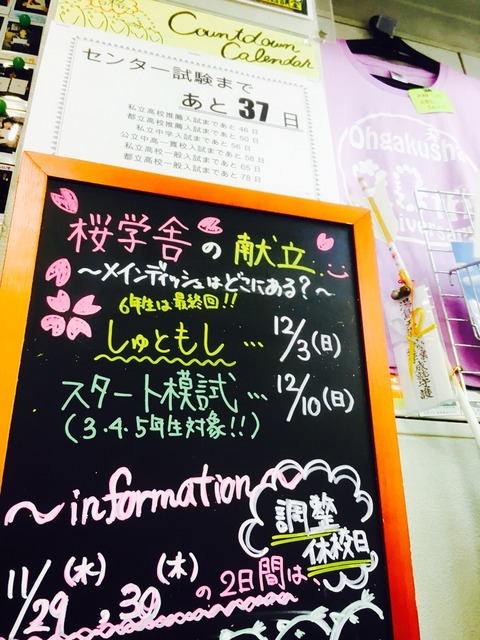 Countdown
Calendar
センター試験まで
あと 37 日
私立高校推薦入試まであと 46 日
都立高校推薦入試まであと 50 日
私立中学入試まであと 56 日
公立中高一貫校入試まであと 58 日
私立高校一般入試まであと 65 日
都立高校一般入試まであと 78 日
Ohgakusha
桜学舎の献立
～メインディッシュはどこにある?～
6年生は最終回!!
しゅともし … 12/3(日)
スタート模試… 12/10(日)
(3.4.5年生対象!!)
～information～
調整
休校日
11/29(水), 30(木)の2日間は、